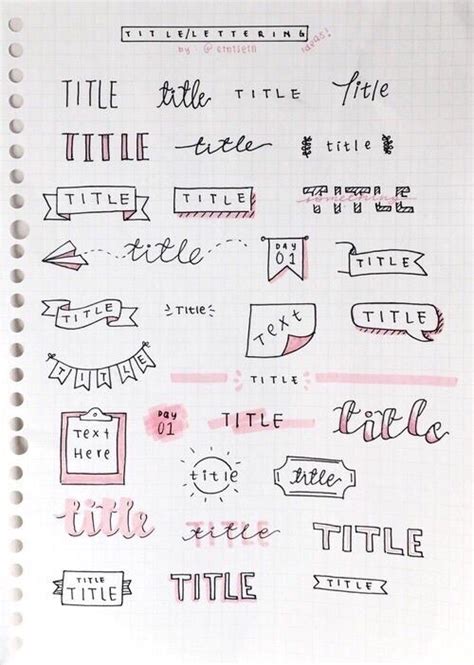 TITLE/LETTERING
ideas!
by: @
TITLE title TITLE Title
TITLE title title
TITLE TITLE TITLE something
title DAY 01 TITLE
TITLE Title Text TITLE
TITLE
TITLE
Text Here DAY 01 TITLE title
title title
title title TITLE
TITLE TITLE TITLE TITLE